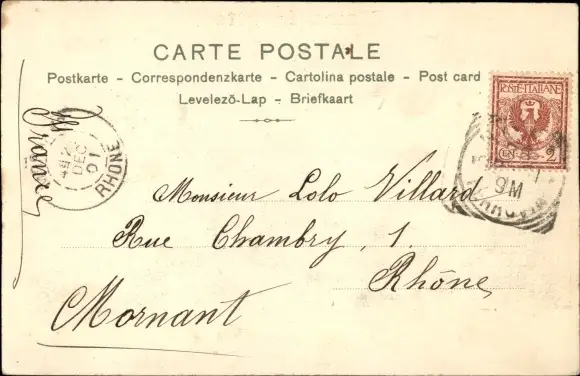 CARTE POSTALE
Postkarte - Correspondenzkarte - Cartolina postale - Post card
Levelező-Lap - Briefkaart
POSTE·ITALIANE
2
DEC
01
RHÔNE
9M
France
Monsieur Lolo Villard
Rue Chambry, 1.
Rhône,
Mornant